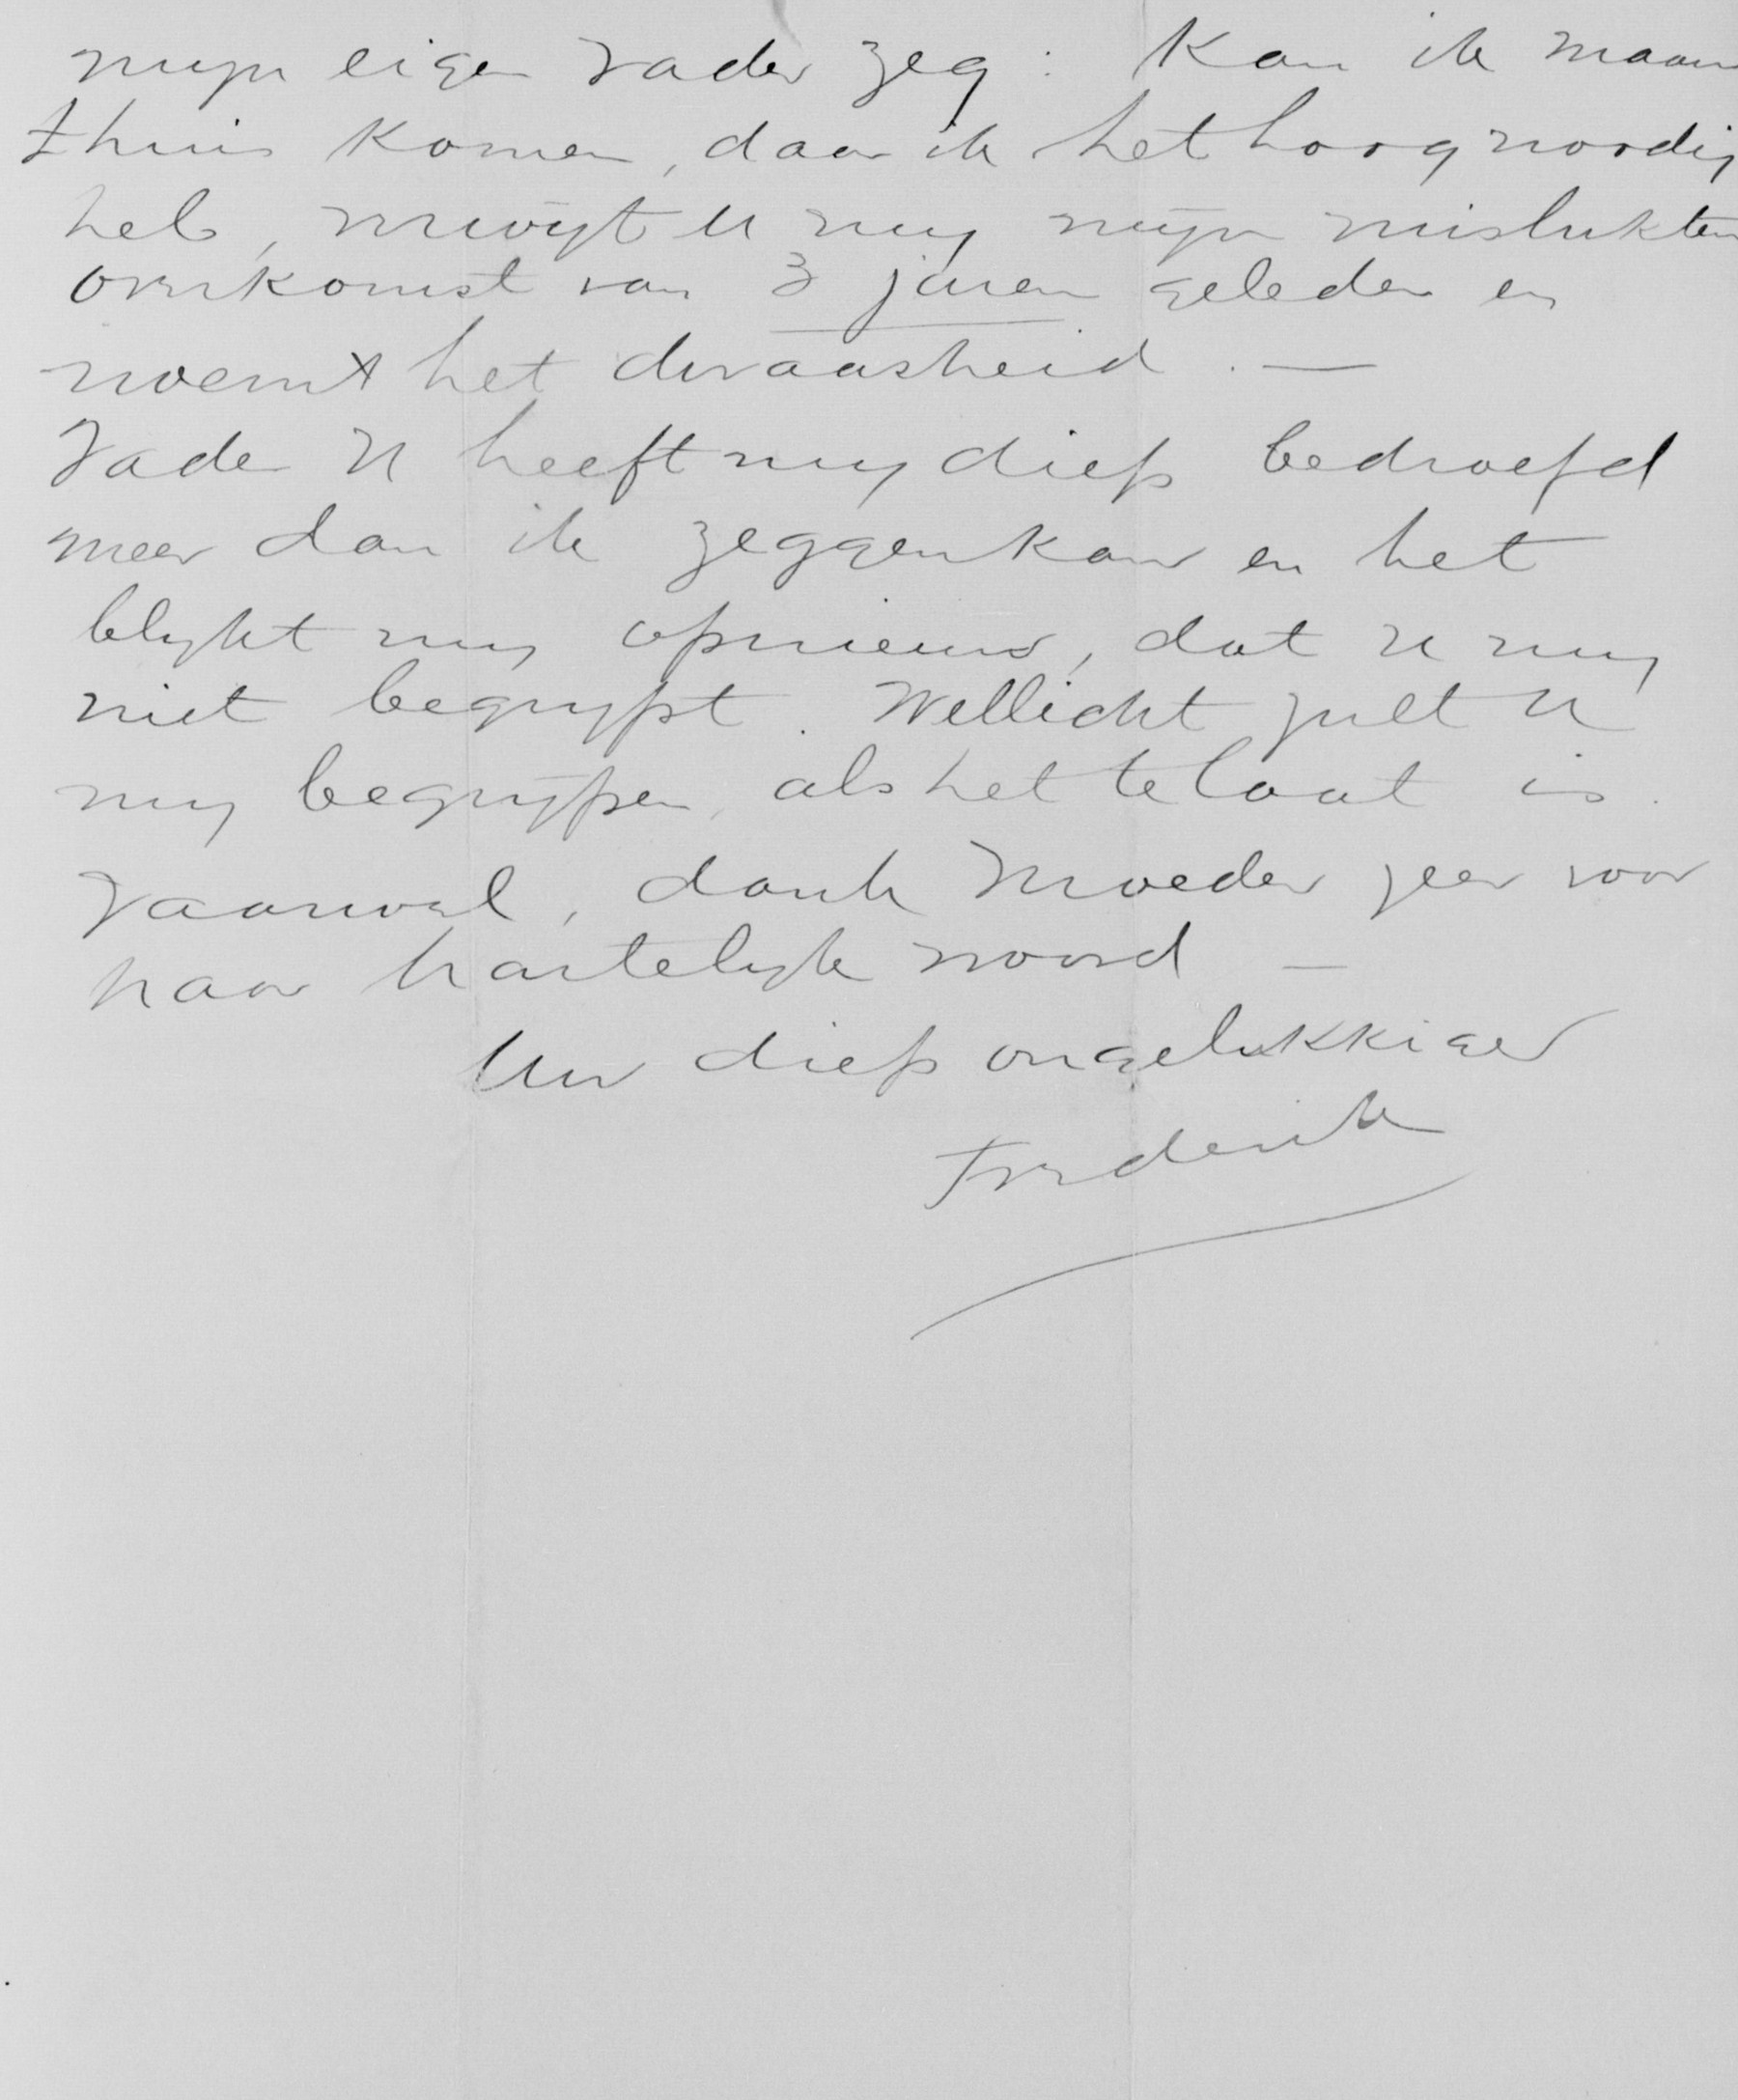 mijn eigen Vader zeg: Kan ik maar
thuis komen, daar ik het hoog noodig
heb, verwijt U mij mijn mislukten
overkomst van 3 jaren geleden en
noemt het dwaasheid. —
Vader U heeft mij diep bedroefd
meer dan ik zeggen kan en het
blijkt mij opnieuw, dat U mij
niet begrijpt. Wellicht zult U
mij begrijpen, als het te laat is.
Vaarwel, dank Moeder zeer voor
haar hartelijk woord —
Uw diep ongelukkiger
Frederik